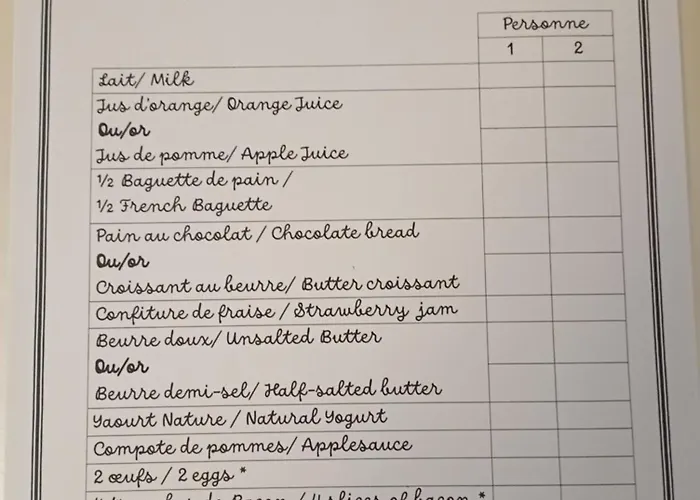 Personne
1 2
Lait/ Milk
Jus d'orange/ Orange Juice
Ou/or
Jus de pomme/ Apple Juice
½ Baguette de pain /
½ French Baguette
Pain au chocolat / Chocolate bread
Ou/or
Croissant au beurre/ Butter croissant
Confiture de fraise / Strawberry jam
Beurre doux/ Unsalted Butter
Ou/or
Beurre demi-sel/ Half-salted butter
Yaourt Nature / Natural Yogurt
Compote de pommes/ Applesauce
2 œufs / 2 eggs *